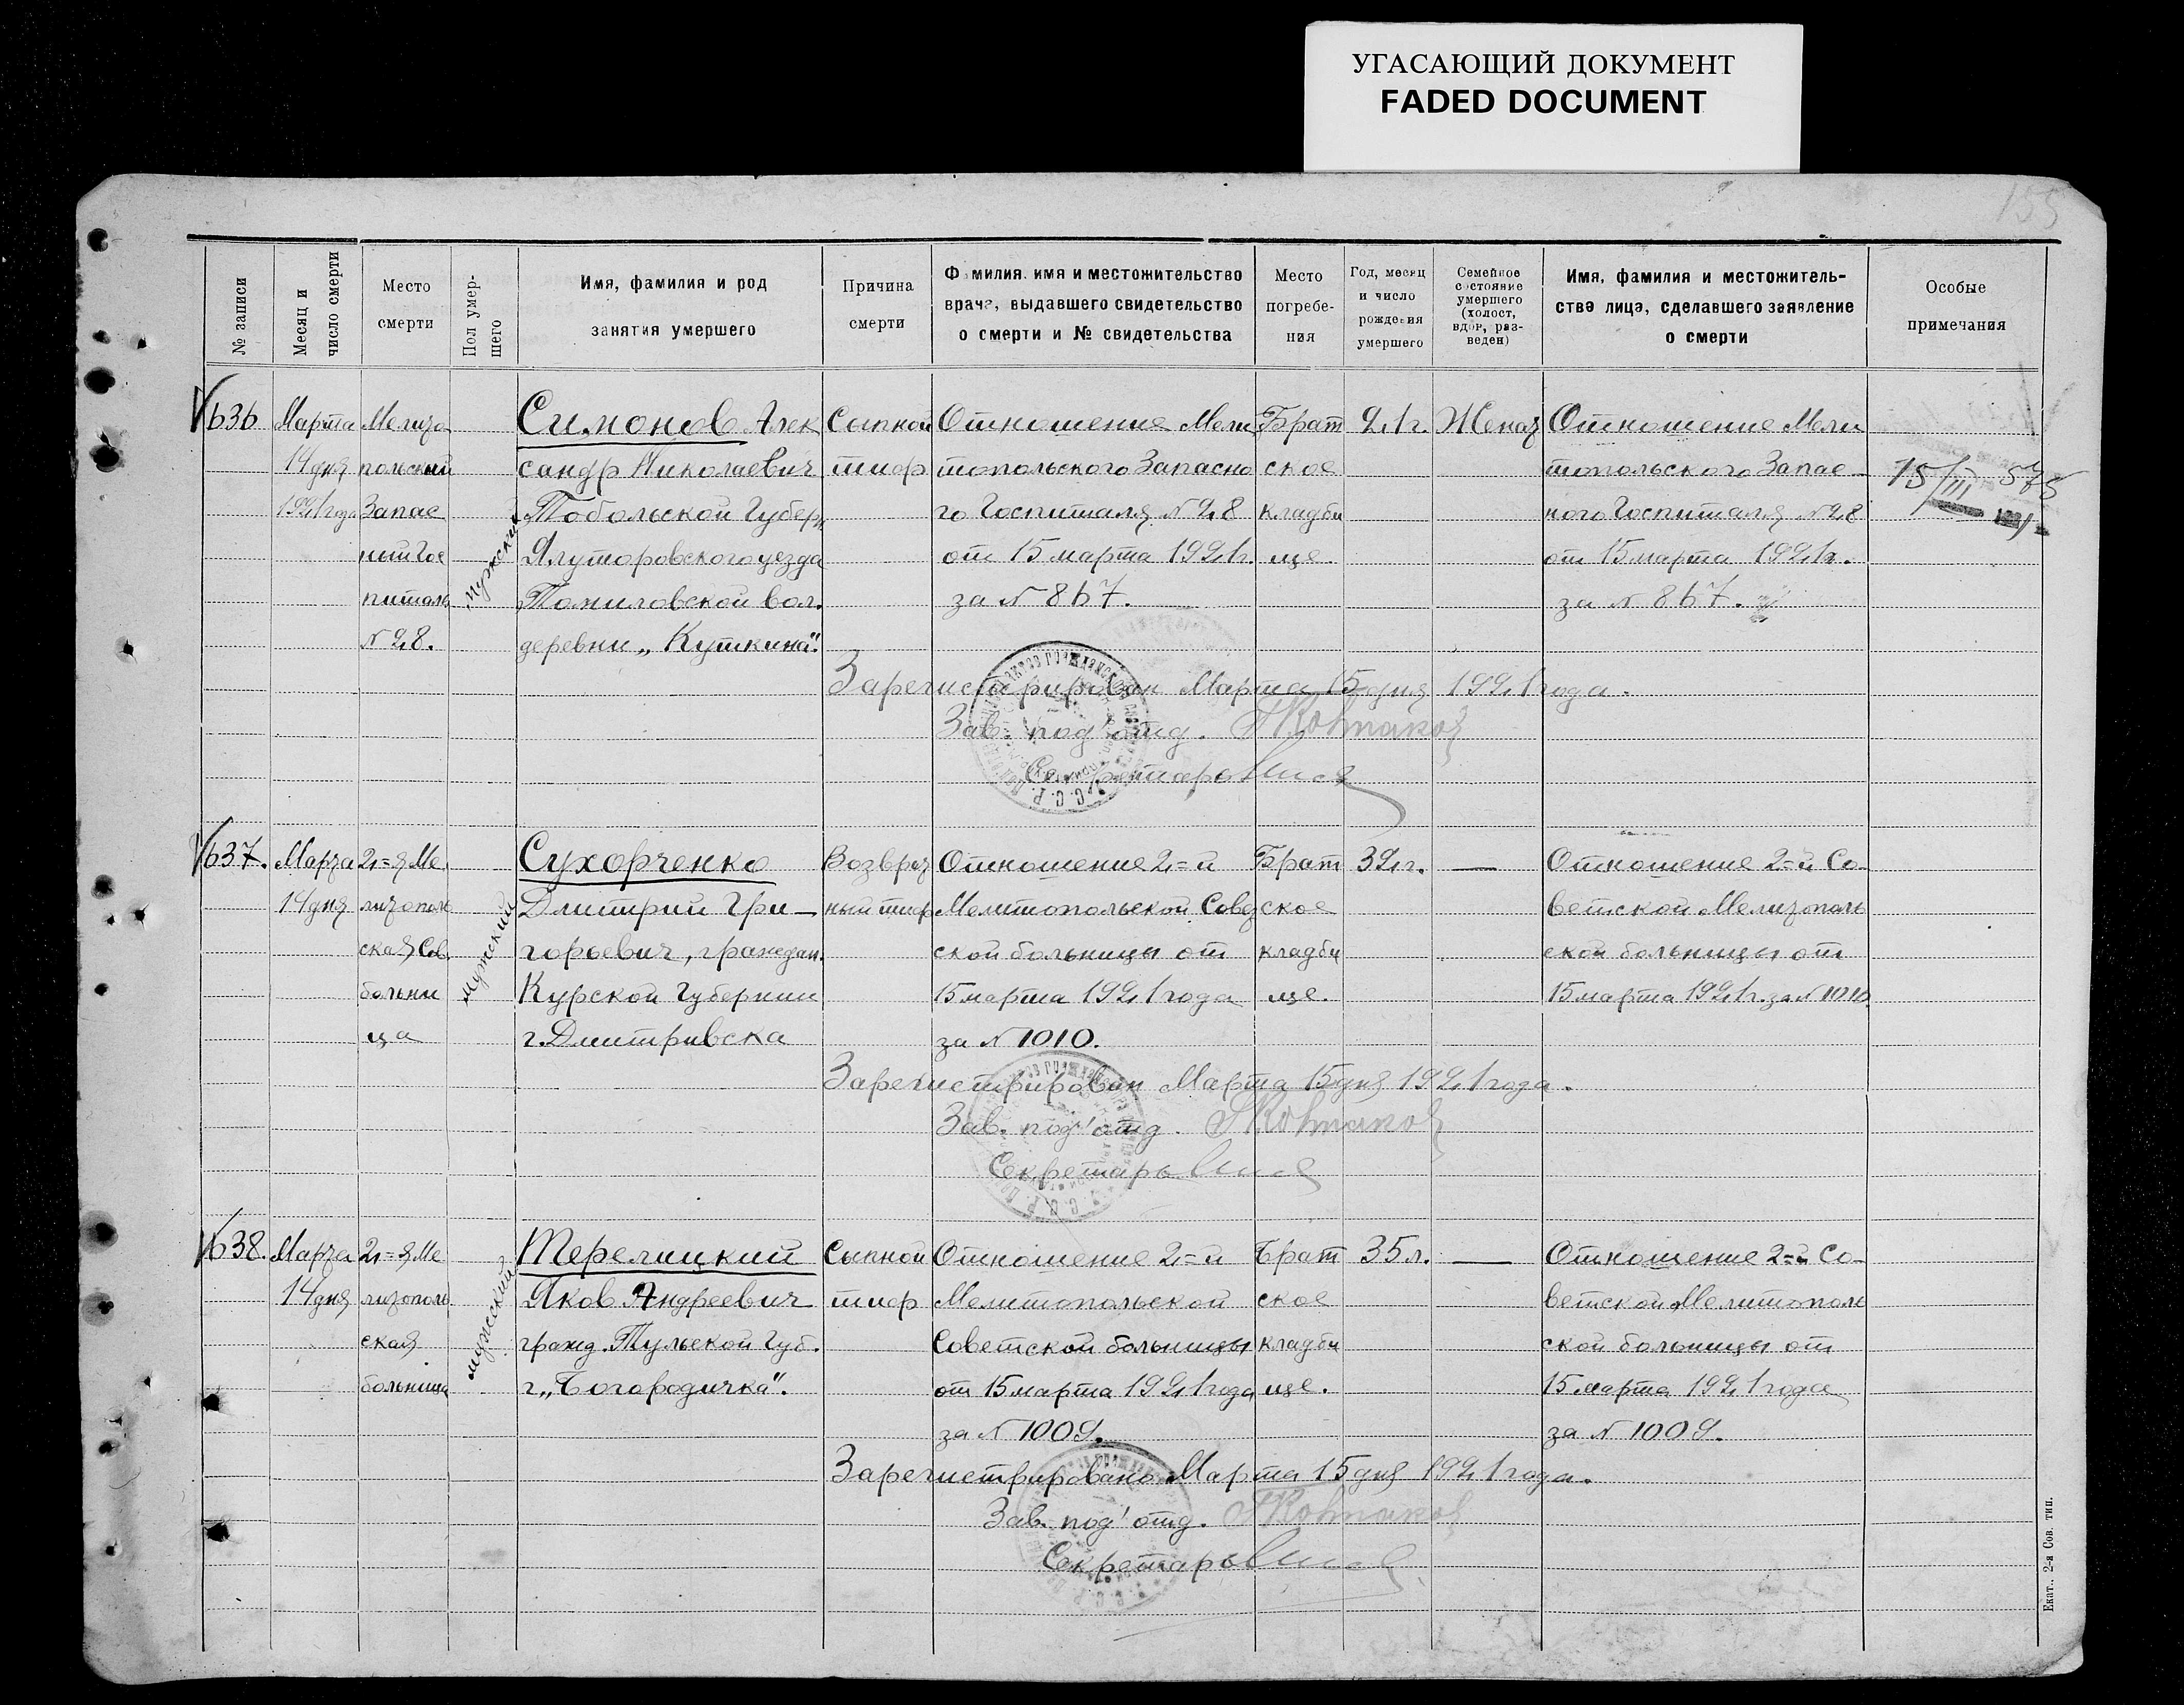 УГАСАЮЩИЙ ДОКУМЕНТ
FADED DOCUMENT
155
№ записи
Месяц и
число смерти
Место
смерти
Пол умер-
шего
Имя, фамилия и род
занятия умершего
Причина
смерти
Фамилия, имя и местожительство
врача, выдавшего свидетельство
о смерти и № свидетельства
Место
погребе-
ния
Год, месяц
и число
рождения
умершего
Семейное
состояние
умершего
(холост,
вдов, раз-
веден)
Имя, фамилия и местожитель-
ство лица, сделавшего заявление
о смерти
Особые
примечания
636
Марта
14 дня
1921 года
Мелито
польский
Запас
ный Гос
питаль
№ 28.
мужский
Симонов Алек
сандр Николаевич
Тобольской Губерн
Ялуторовского уезда
Томиловской вол.
деревни „Куткина"
Сыпной
тиф
Отношение Мели
топольского Запасно
го Госпиталя № 28
от 15 марта 1921 г.
за № 867.
Брат
ское
кладби
ще
21 г.
Женат
Отношение Мели
топольского Запас
ного Госпиталя № 28
от 15 марта 1921 г.
за № 867.
15/III 575
Зарегистрирован Марта 15 дня 1921 года.
Зав. под'отд.
Секретарь
637.
Марта
14 дня
2=я Ме
литополь
ская Сов.
больни
ца
мужский
Сухорченко
Дмитрий Гри—
горьевич, граждан.
Курской Губернии
г. Дмитривска
Возврат
ный тиф
Отношение 2=й
Мелитопольской Совет
ской больницы от
15 марта 1921 года
за № 1010.
Брат
ское
кладби
ще.
32 г.
—
Отношение 2=й Со-
ветской Мелитополь
ской больницы от
15 марта 1921 г. за № 1010.
Зарегистрирован Марта 15 дня 1921 года.
Зав. под'отд.
Секретарь
638.
Марта
14 дня
2=я Ме
литополь
ская
больница
мужский
Терелицкий
Яков Андреевич
гражд. Тульской Губ.
г „Богородичка".
Сыпной
тиф
Отношение 2=й
Мелитопольской
Советской больницы
от 15 марта 1921 года
за № 1009.
Брат
ское
кладби
ще.
35 л.
—
Отношение 2=й Со-
ветской Мелитополь
ской больницы от
15 марта 1921 года
за № 1009.
Зарегистрировано Марта 15 дня 1921 года.
Зав. под'отд.
Секретарь
Екат., 2-я Сов. тип.